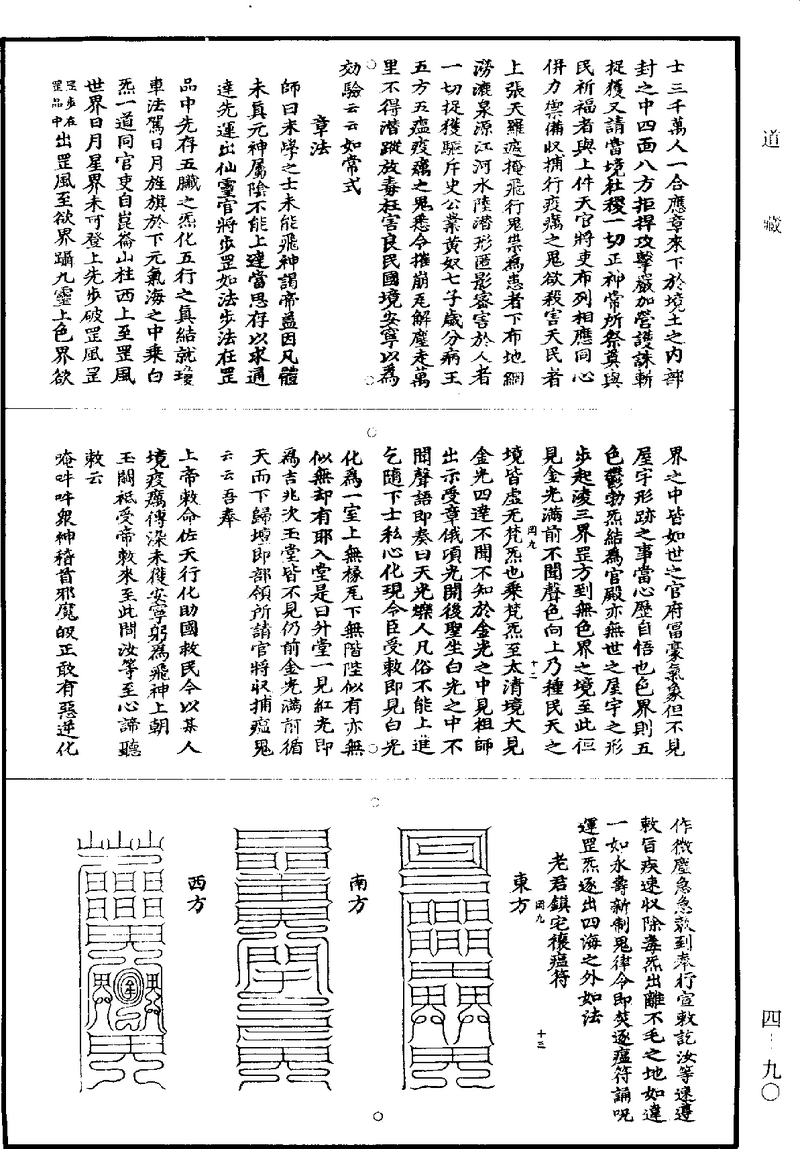 道藏
四·九〇
士三千萬人一合應章來下於境土之内部
封之中四面八方拒捍攻擊嚴加營護誅斬
捉獲又請當境社稷一切正神常所祭奠與
民祈福者與上件天官將吏布列相應同心
併力禦備收捕行疫癘之鬼欲殺害天民者
上張天羅遮掩飛行鬼祟為患者下布地網
澇漉泉源江河水陸潜形匿影容害於人者
一切捉獲驅斥史公業黄奴七子歲分病王
五方五瘟疫癘之鬼悉令摧崩瓦解塵走萬
里不得潜蹤放毒枉害良民國境安寧以為
効驗云云如常式
章法
師曰末學之士未能飛神謁帝蓋因凡體
未真元神屬陰不能上達當思存以求通
達先運出仙靈官將步罡如法步法在罡
品中先存五臟之炁化五行之真結就瓊
車法駕日月旌旗於下元氣海之中乘白
炁一道同官吏自崑崙山柱西上至罡風
世界日月星界未可登上先步破罡風罡
罡步在罡品中出罡風至欲界躡九靈上色界欲
界之中皆如世之官府富豪氣象但不見
屋宇形跡之事當心歷自悟也色界則五
色鬱勃炁結為官殿亦無世之屋宇之形
步起淩三界罡方到無色界之境至此但
見金光滿前不聞聲色向上乃種民天之
境皆虚无梵炁也乘梵炁至太清境大見
金光四達不聞不知於金光之中見祖師
出示受章俄頃光開後聖坐白光之中不
聞聲語即奏曰天光爍人凡俗不能上進
乞隨下士私心化現令臣受敕即見白光
化為一室上無椽瓦下無階陛似有亦無
似無却有耶入堂是曰升堂一見紅光即
為吉兆次玉堂皆不見仍前金光滿前循
天而下歸壇即部領所請官將收捕瘟鬼
云云吾奉
上帝敕命佐天行化助國救民今以某人
境疫癘傳染未獲安寧躬為飛神上朝
玉闕袛受帝敕來至此間汝等至心諦聽
敕云
唵吽吽衆神稽首邪魔皈正敢有惡逆化
罔九
十二
作微塵急急敕到奉行宣敕訖汝等速遵
敕旨疾速收除毒炁出離不毛之地如違
一如永壽新制鬼律令即焚逐瘟符誦呪
運罡炁逐出四海之外如法
老君鎮宅禳瘟符
罔九
十三
東方
南方
西方